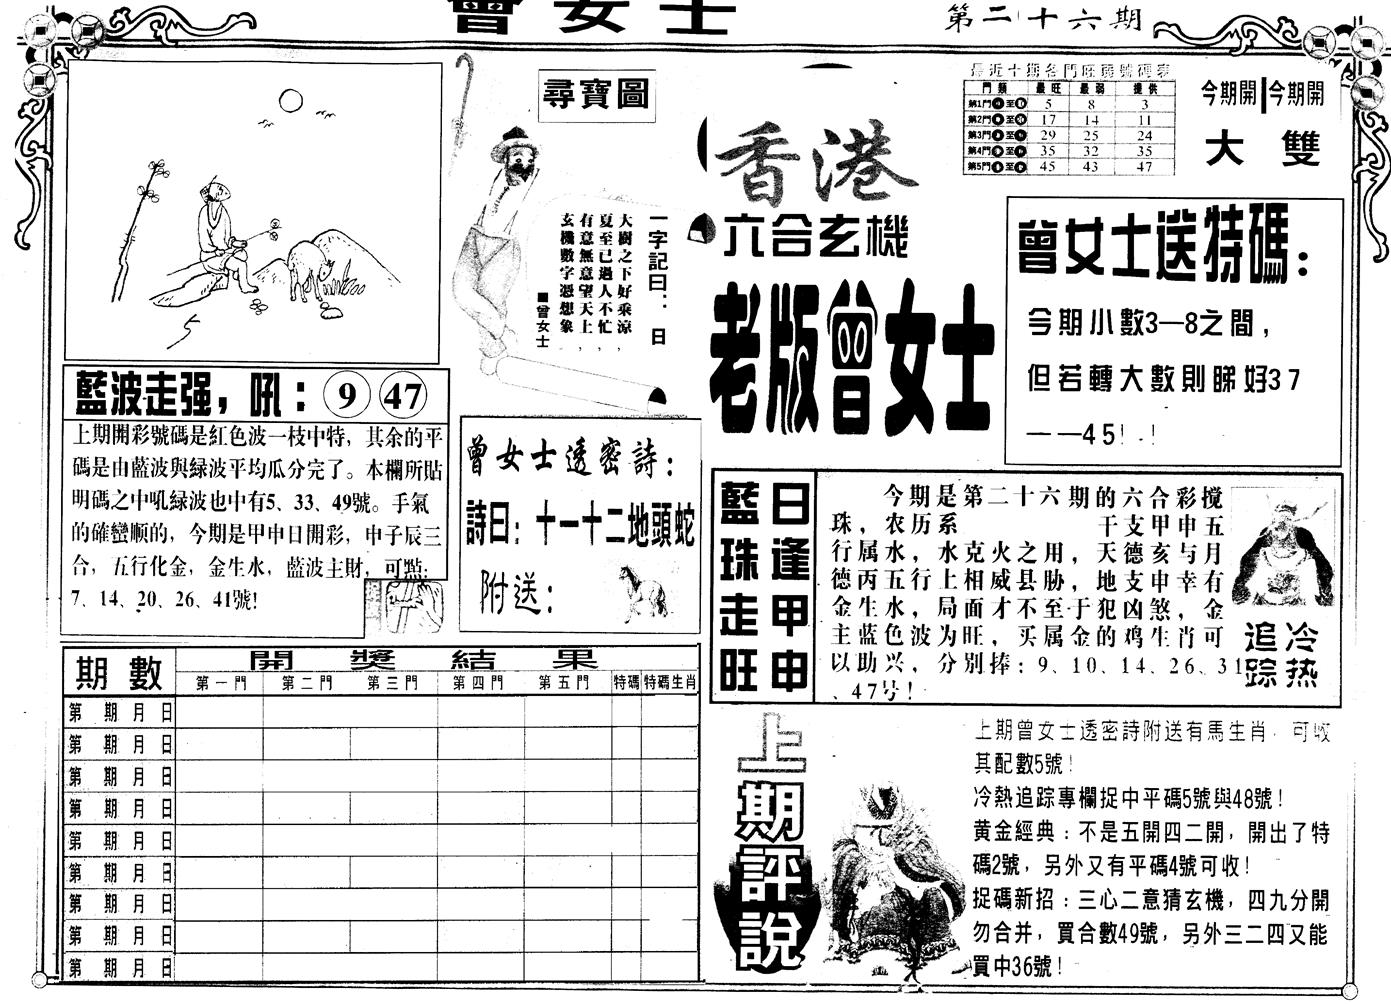 曾女士
第二十六期
尋寶圖
一字記曰：日
大樹之下好乘涼，
夏至已過人不忙，
有意無意望天上，
玄機數字憑想象。
■曾女士
藍波走强，吼：9 47
上期開彩號碼是紅色波一枝中特，其余的平
碼是由藍波與緑波平均瓜分完了。本欄所貼
明碼之中吼緑波也中有5、33、49號。手氣
的確蠻順的，今期是甲申日開彩，申子辰三
合，五行化金，金生水，藍波主財，可點：
7、14、20、26、41號!
曾女士透密詩：
詩曰：十一十二地頭蛇
附送：
期數 開獎結果
第一門 第二門 第三門 第四門 第五門 特碼 特碼生肖
第 期 月 日
第 期 月 日
第 期 月 日
第 期 月 日
第 期 月 日
第 期 月 日
第 期 月 日
第 期 月 日
第 期 月 日
香港
六合玄機
老版曾女士
最近十期各門旺弱號碼表
門類 最旺 最弱 提供
第1門 至 5 8 3
第2門 至 17 14 11
第3門 至 29 25 24
第4門 至 35 32 35
第5門 至 45 43 47
今期開 今期開
大 雙
曾女士送特碼：
今期小數3—8之間，
但若轉大數則睇好37
——45!
日逢甲申
藍珠走旺
今期是第二十六期的六合彩搅
珠，农历系 干支甲申五
行属水，水克火之用，天德亥与月
德丙五行上相威县胁，地支申幸有
金生水，局面才不至于犯凶煞，金
主蓝色波为旺，买属金的鸡生肖可
以助兴，分别捧：9、10、14、26、31
、47号!
冷热
追踪
上期評說
上期曾女士透密詩附送有馬生肖，可收
其配數5號!
冷熱追踪專欄捉中平碼5號與48號!
黄金經典：不是五開四二開，開出了特
碼2號，另外又有平碼4號可收!
捉碼新招：三心二意猜玄機，四九分開
勿合并，買合數49號，另外三二四又能
買中36號!